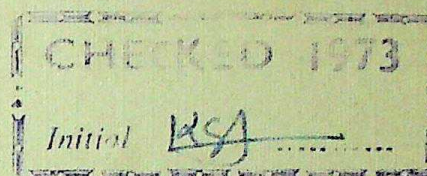 CHECKED 1973
Initial